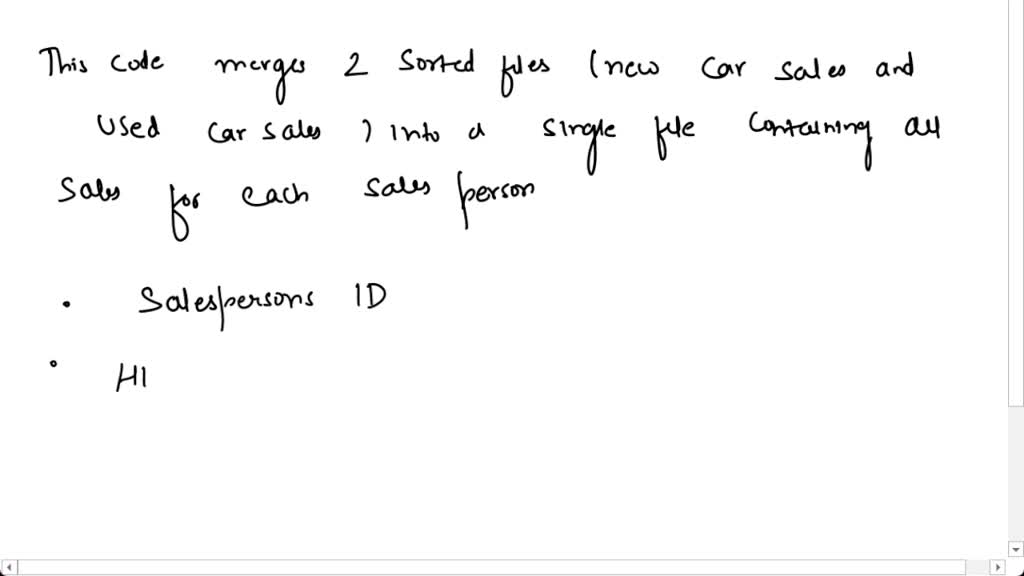 This code merges 2 Sorted files (new Car sales and
Used Car sales ) into a single file Containing all
Sales for each sales person
• Salespersons ID
• HI